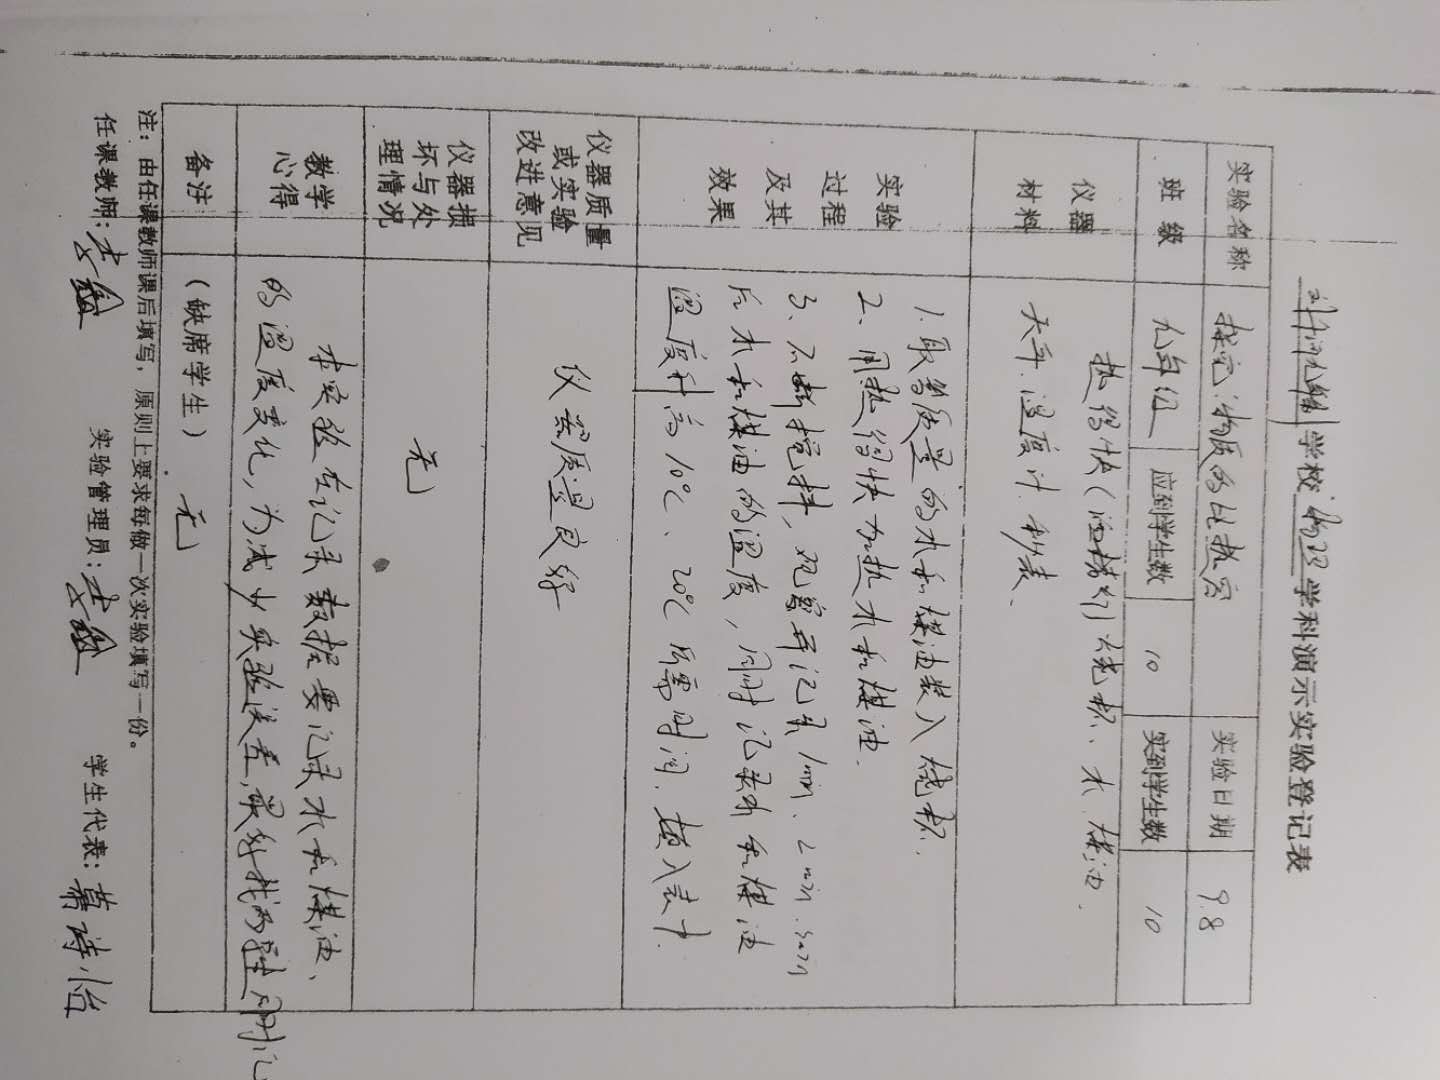 学校 物理 学科演示实验登记表
实验名称 探究:物质的比热容 实验日期 9.8
班 级 九年级 应到学生数 10 实到学生数 10
仪器材料 热得快(两根) 烧杯、水、煤油、
天平、温度计、秒表、
实验过程及其效果 1.取等质量的水和煤油装入烧杯.
2、用热得快加热水和煤油.
3、不断搅拌,观察并记录1min、2min、3min
后水和煤油的温度,同时记录水和煤油
温度升高10℃、20℃所需时间.填入表中.
仪器质量或实验改进意见 仪器质量良好
仪器损坏与处理情况 无
教学心得 本实验在记录数据要记录水和煤油、
的温度变化,为减少实验误差,最好找两学生同时记
备注 (缺席学生) 无
注:由任课教师课后填写,原则上要求每做一次实验填写一份。
任课教师: 实验管理员: 学生代表: 诗怡